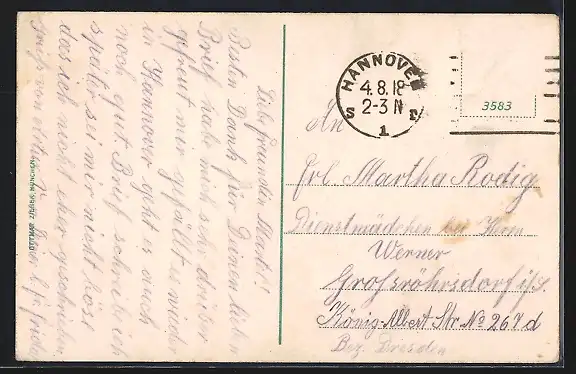 Liebe freundin Martel!
Besten Dank für Deinen lieben
Brief habe mich sehr darüber
gefreut mir gefällt es wieder
in Hannover geht es auch
noch gut. Brief schreibe ich
später sei mir nicht bös
das ich nicht eher geschrieben
Grüß von
OTTMAR ZIEHER, MÜNCHEN.
HANNOVER
4.8.18
2-3 N
S
1
3583
An
Frl. Martha Rodig
Dienstmädchen bei Herrn
Werner
Grossröhrsdorf i/s.
König-Albert Str No 267d
Bez. Dresden